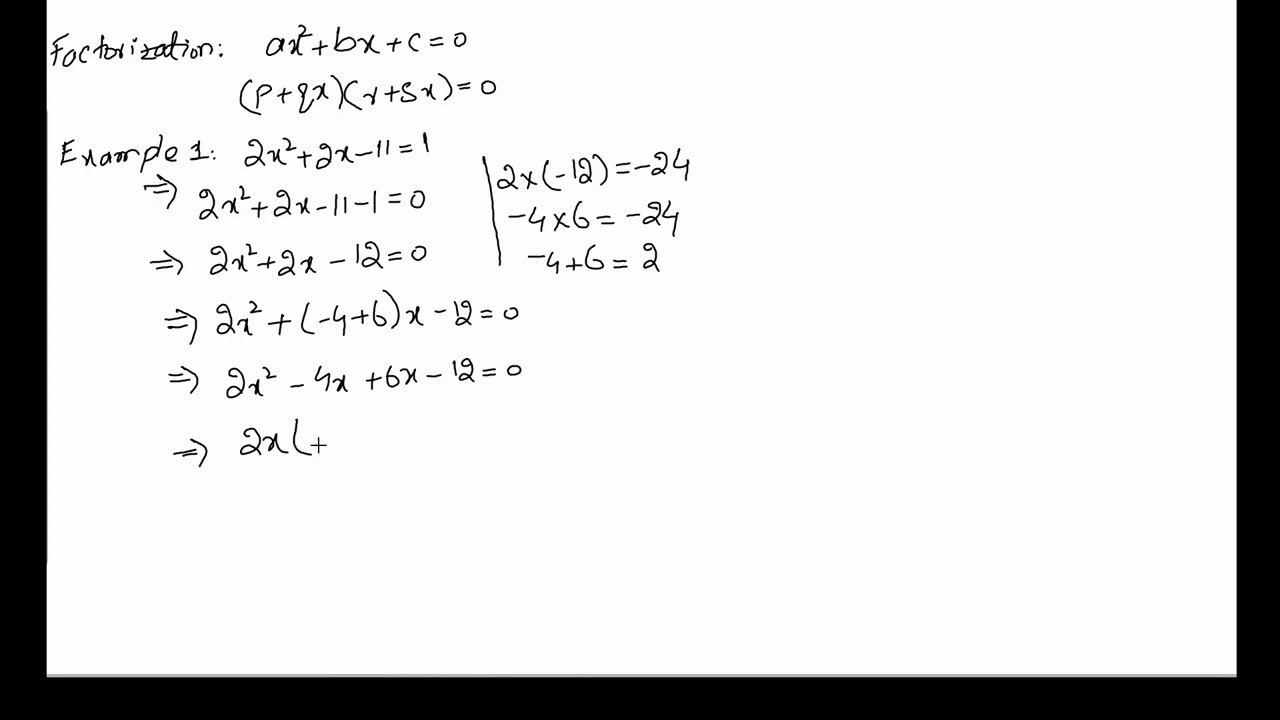 Factorization: ax²+bx+c=0
(p+qx)(r+sx)=0
Example 1: 2x²+2x-11=1
⇒ 2x²+2x-11-1=0
⇒ 2x²+2x-12=0
⇒ 2x²+(-4+6)x-12=0
⇒ 2x²-4x+6x-12=0
⇒ 2x(
2×(-12)=-24
-4×6=-24
-4+6=2